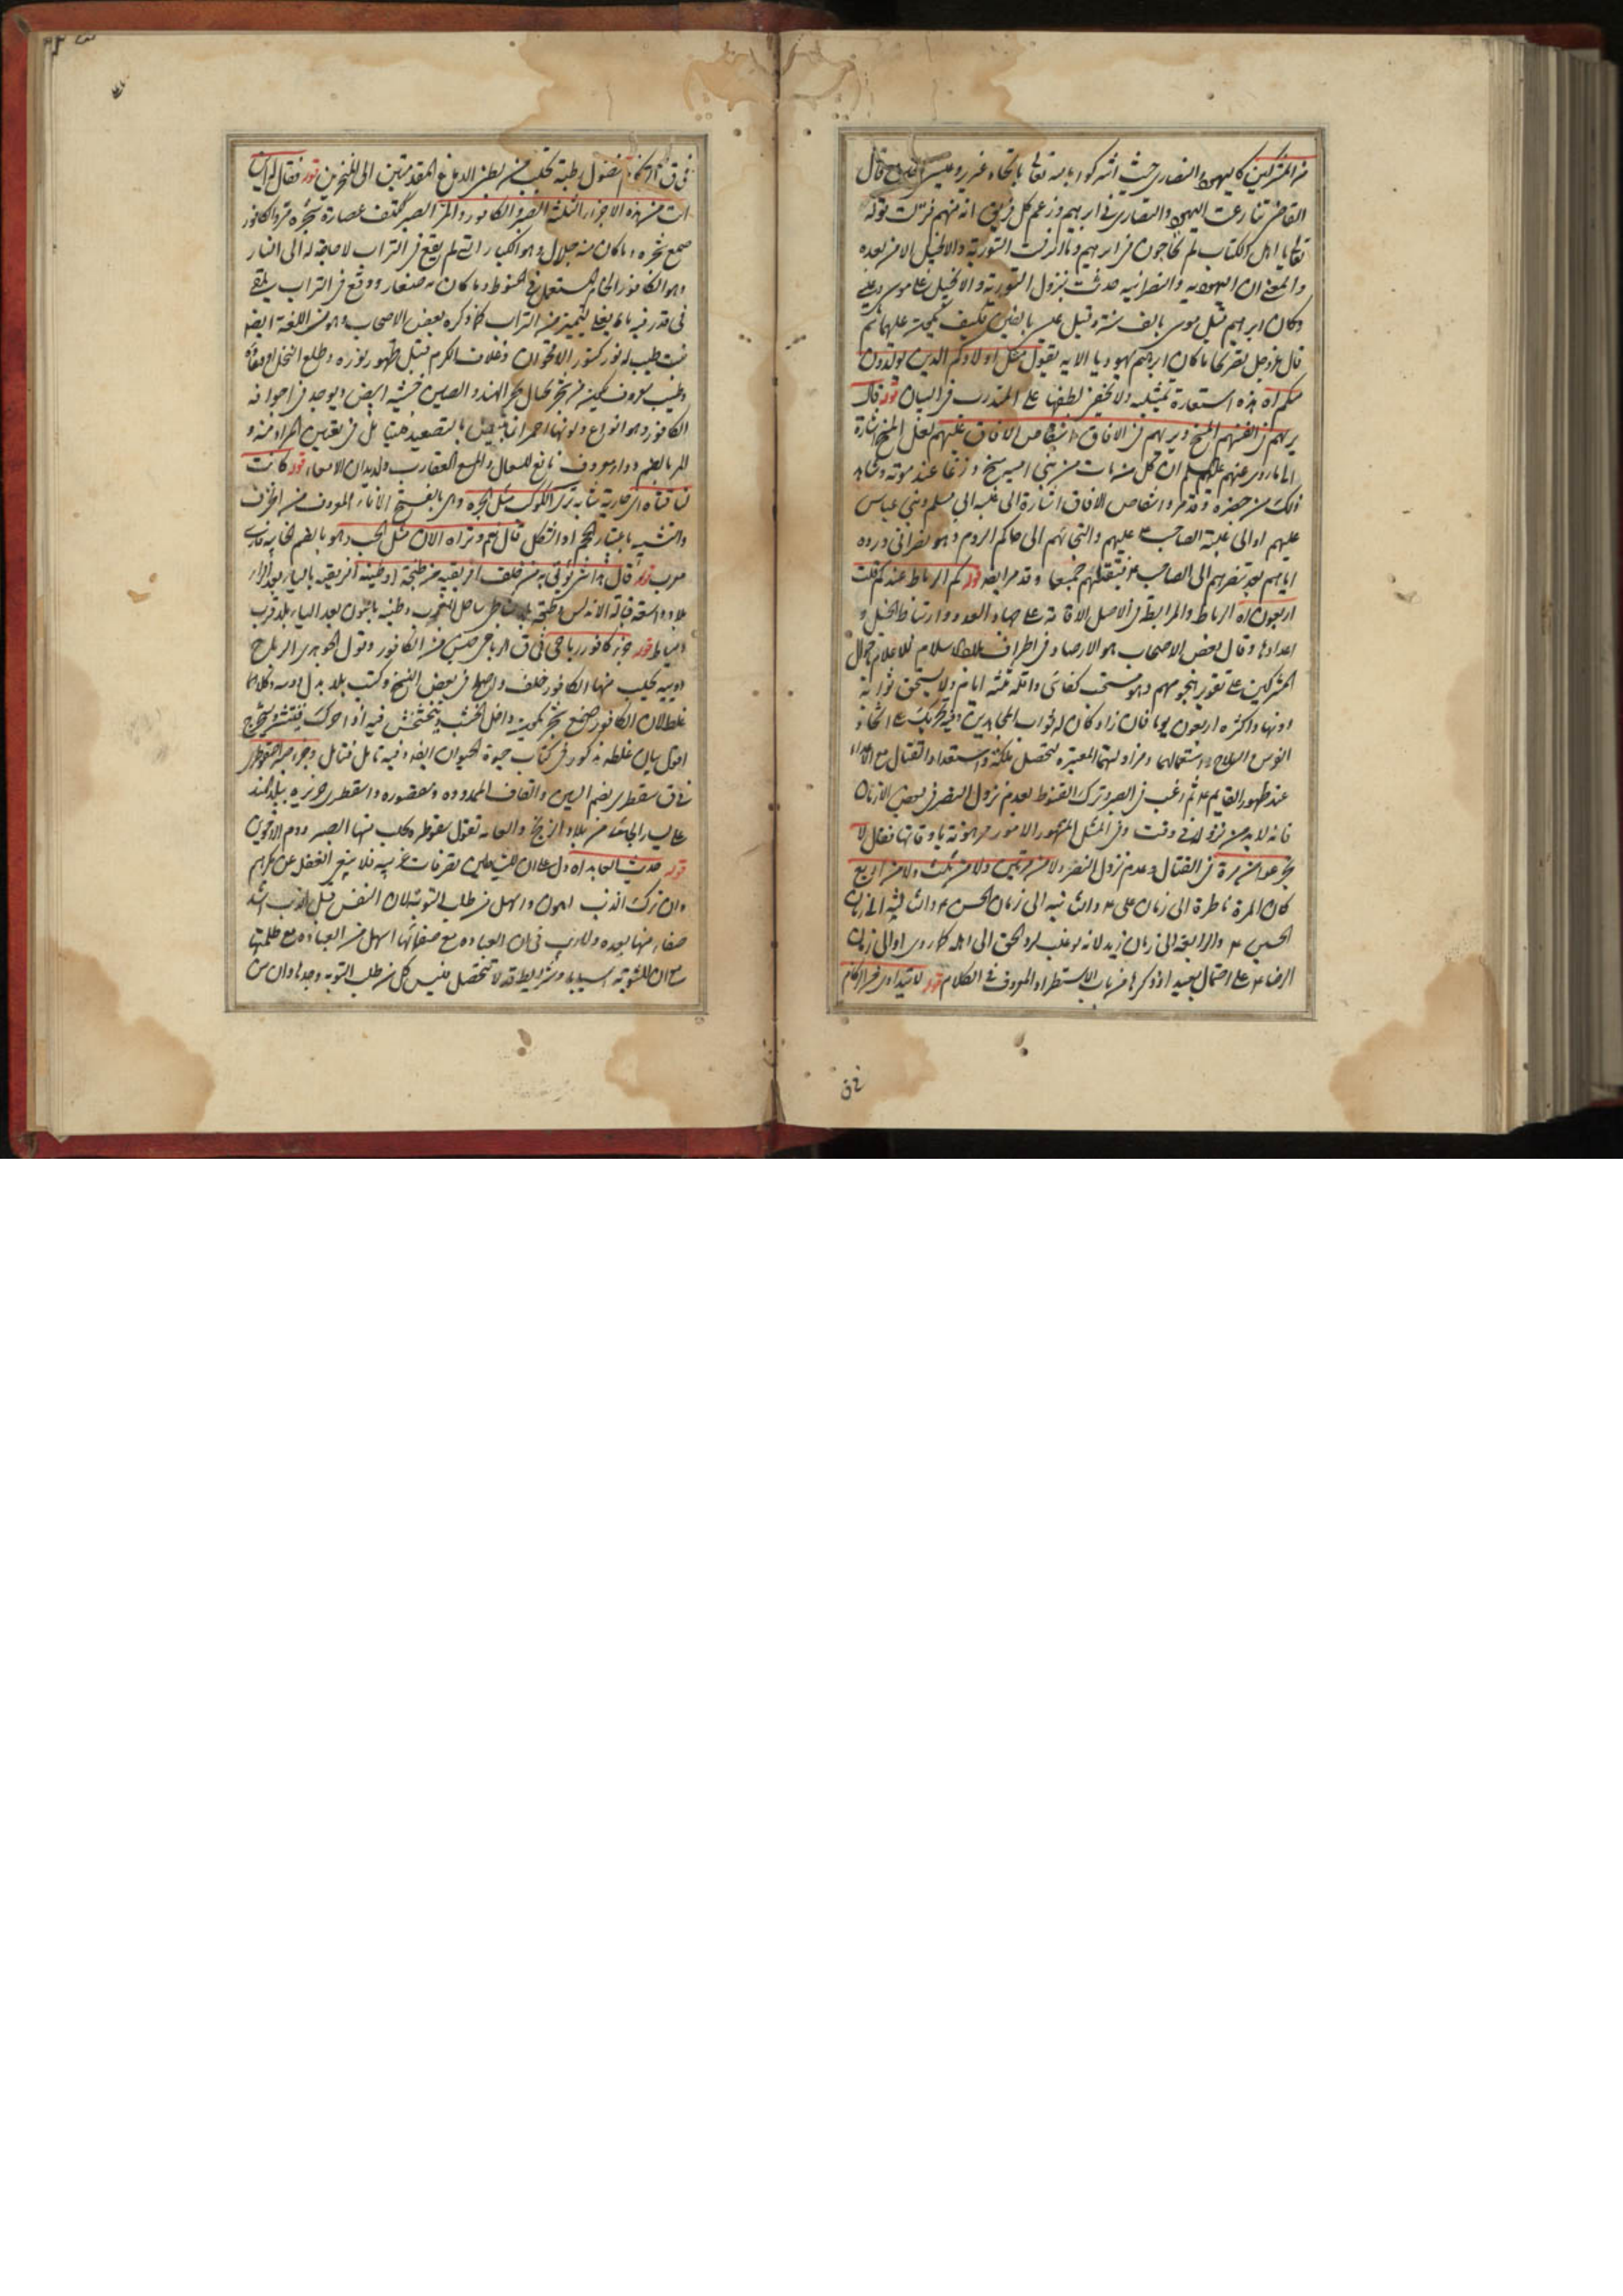 من المشركين كاليهود والنصارى حيث اشركوا بالله تعالى باتخاذ عزير وعيسى قال
القاضي تنازعت اليهود والنصارى في ابرهيم وزعم كل فريق انه منهم فنزلت قوله
تعالى يا اهل الكتاب لم تحاجون في ابرهيم وما انزلت التورية والانجيل الا من بعده
والمعنى ان اليهودية والنصرانية حدثت بنزول التورية والانجيل على موسى وعيسى
وكان ابرهيم قبل موسى بالف سنة وقبل عيسى بالفين فكيف يكون عليهما ثم
قال عزوجل تصريحا ما كان ابرهيم يهوديا الاية يقول مثل اولادكم الذين يولدون
منكم اه هذه استعارة تمثيلية ولا يخفى لطفها على المتدرب في البيان قوله قال
يريهم في انفسهم المسخ ويريهم في الافاق انتقاض الافاق عليهم لعل المسخ اشارة
الى ما روى عنهم عليهم السلم ان كل من مات من بني امية مسخ وزغا عند موته
ذلك من حضره وقد مر وانتقاض الافاق اشارة الى غلبة ابي مسلم وبني عباس
عليهم او الى غلبة الصاحب ع عليهم والتجائهم الى حاكم الروم وهو نصراني ورده
اياهم بعد تنصرهم الى الصاحب ع فيقتلهم جميعا وقد مر ايضا قوله كم الرباط عندكم قلت
اربعون اه الرباط والمرابطة في الاصل الاقامة على جهاد العدو وارتباط الخيل و
اعدادها وقال بعض الاصحاب هو الارصاد في اطراف بلاد الاسلام للاعلام باحوال
المشركين على تقدير هجومهم وهو مستحب كفائي واقله ثلثة ايام ولا يستحق ثوابه
دونها واكثره اربعون يوما فان زاد كان له ثواب المجاهدين وفيه تحريك على اتخاذ
الفرس والسلاح واستعمالهما ومزاولتهما المعتبرة لتحصل ملكة واستعداد القتال مع الاعداء
عند ظهور القايم ع ثم رغب في الصبر وترك القنوط لعدم نزول النصر في بعض الازمان
فانه لا بد من نزوله في وقت وفي المثل المشهور الامور مرهونة باوقاتها فقال لا
تجزعوا من مرة في القتال وعدم نزول النصر ولا من مرتين ولا من ثلث ولا من اربع
كان المرة ناظرة الى زمان علي ع والثانية الى زمان الحسن ع والثالثة الى زمان
الحسين ع والرابعة الى زمان زيد لانه لو غلب لرد الحق الى اهله كما روى او الى زمان
الرضا ع على احتمال بعيد اذ ذكرها من باب الاستطراد المعروف في الكلام قوله
في ق الزكام فضول رطبة تجلب من بطن الدماغ المقدمتين الى المنخرين قوله فقال له اين
انت من هذه الاجزاء الثلثة الصبر والكافور والمر الصبر ككتف عصارة شجرة مر والكافور
صمغ شجرة وما كان منه جلال وهو الكبار التي لم يقع في التراب لا حاجة له الى النار
وهو الكافور الخام المستعمل في الحنوط وما كان منه صغار ووقع في التراب يلقى
في قدر فيه ماء يغلى ليتميز من التراب كما ذكره بعض الاصحاب وهو في اللغة ايضا
نبت طيب له نور كنور الاقحوان وغلاف الكرم قبل ظهور نوره وطلع النخل او وعاؤه
وطيب معروف يكون من شجر بجبال بحر الهند والصين خشبه ابيض ويوجد في اجوافه
الكافور وهو انواع ولونها احمر انما يبيض بالتصعيد في تعيين المراد منه و
المر بالضم دواء معروف نافع للسعال ولسع العقارب ولديدان الامعاء قوله كانت
والتشبيه باعتبار الحجم او الشكل قال نعم وتراه الان مثل الحب وهو بالضم الخابية فارسي
معرب قوله قال هذا شيء يؤتى به من خلف افريقية من طنجة او طبنة افريقية بالياء
بلاد واسعة قبالة الاندلس وطنجة بلد بشاطئ ساحل المغرب وطبنة بلد قرب
دمياط قوله كافور رباحي في ق الرباحي جنس من الكافور وقول الجوهري الرباح
دويبة يجلب منها الكافور خلف واصلح في بعض النسخ وكتب بلد بدل دويبة وكلاهما
غلط لان الكافور صمغ شجر يكون داخل الخشب ويتخشخش فيه اذا حرك فينشر ويستخرج
اقول بيان غلطه مذكور في كتاب حيوة الحيوان ايضا وفيه تامل فتامل وجزء صبر اسقوطري
في ق سقطرى بضم السين والقاف الممدودة ومقصورة واسقطرى جزيرة ببلد الهند
على يسار الجائي من بلاد الزنج والعامة تقول سقوطرة يجلب منها الصبر ودم الاخوين
قوله حديث العابد اه دل على ان للشياطين تصرفات غريبة فلا ينبغي الغفل عن مكرهم
وان ترك الذنب اهون واسهل من طلب التوبة لان النفس قبل الذنب اشد
صفاء منها بعده ولا ريب في ان العبادة مع صفائها اسهل من العبادة مع ظلمتها
مع ان للتوبة اسبابا وشرايط قد لا تتحصل فليس كل من طلب التوبة وجدها وان من